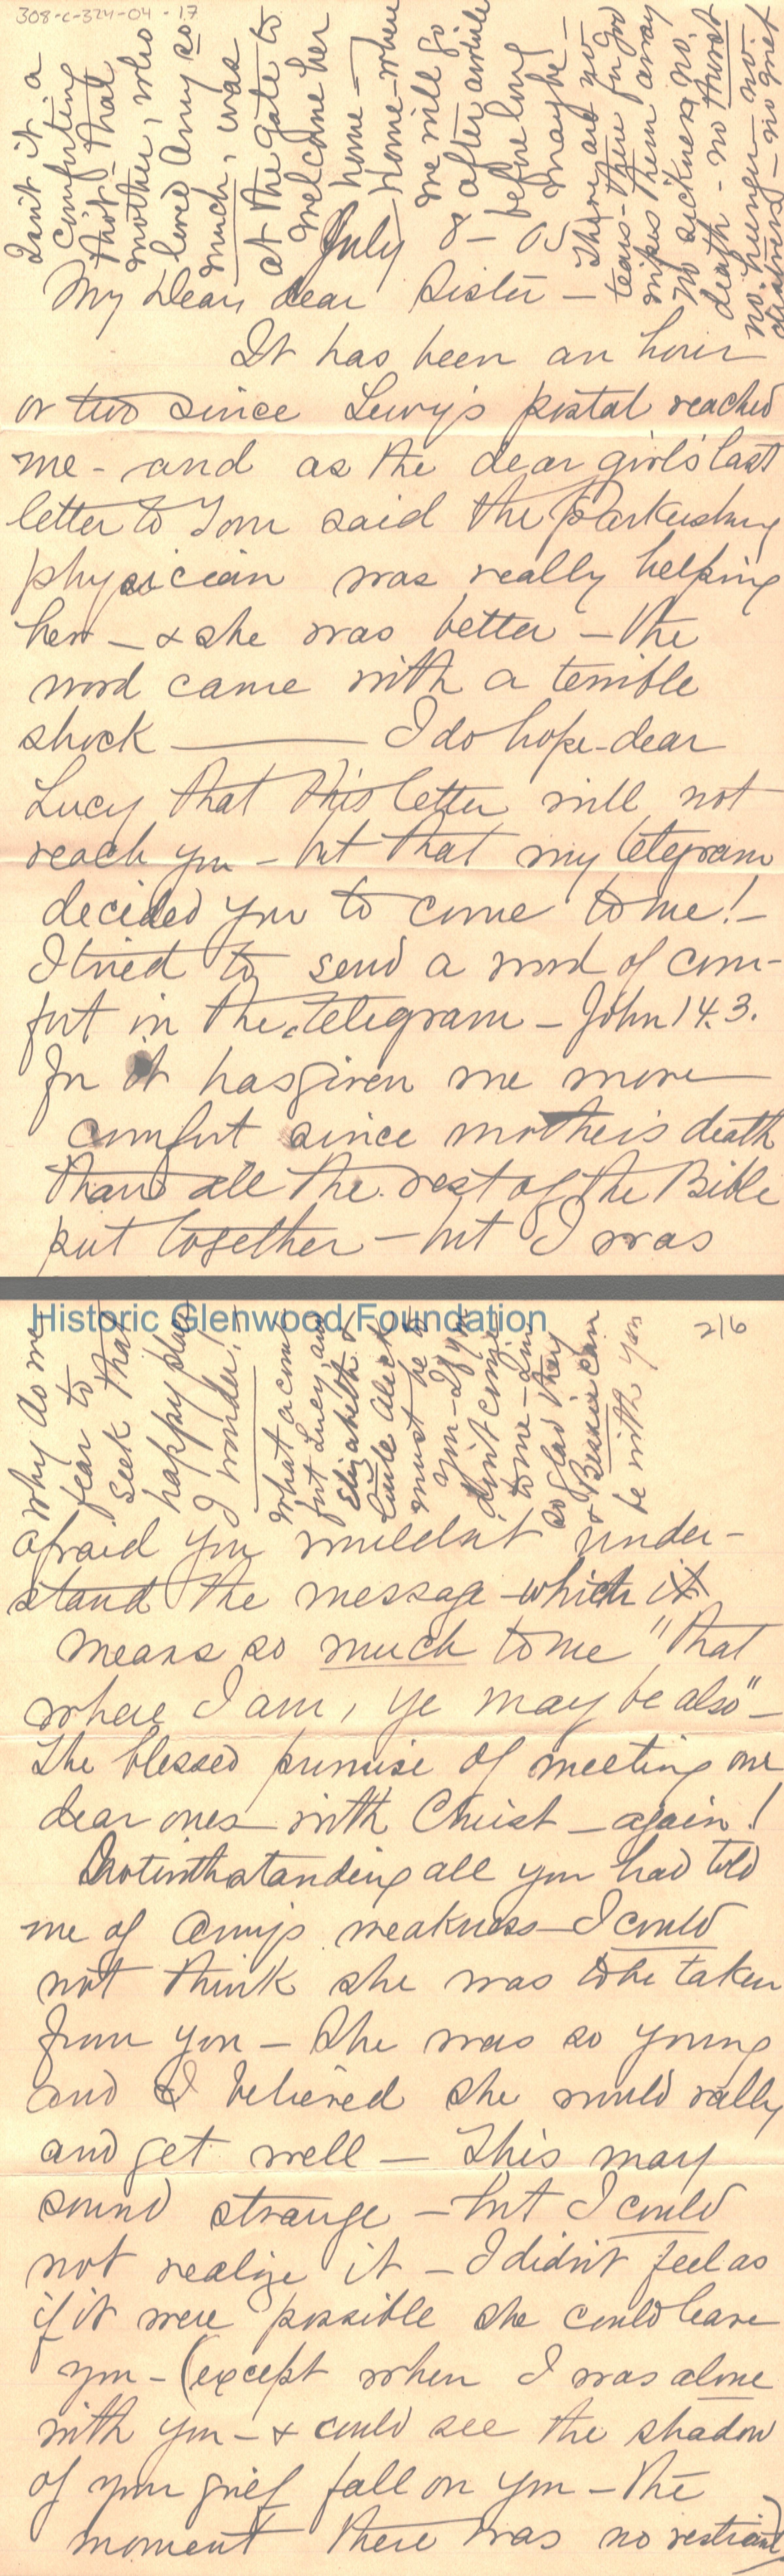 308-c-324-04-17
Isn't it a
comforting
tho't - that
mother, who
loved Amy so
much, was
at the gate to
welcome her
home -
Home - when
we will go
after awhile
before long
maybe! -
There are no
tears - there for God
wipes them away
no sickness, no
death - no thirst
no hunger - no
no grief
July 8 - 05
My Dear, dear Sister -
It has been an hour
or two since Lucy's postal reached
me - and as the dear girl's last
letter to Tom said the Parkersburg
physician was really helping
her - & she was better - the
word came with a terrible
shock - I do hope - dear
Lucy that this letter will not
reach you - but that my telegram
decided you to come to me! -
I tried to send a word of com-
fort in the telegram - John 14.3.
for it has given me more
comfort since mother's death
than all the rest of the Bible
put together - but I was
Historic Glenwood Foundation
2/6
Why do we
fear to
seek that
happy place
I wonder!
What a com
fort Lucy, and
Elizabeth &
little Aleck
must be to
you - If you
don't come
to me - I'm
so glad they
& Bessie can
be with you
afraid you wouldn't under-
stand the message - which it
means so much to me "that
where I am, ye may be also" -
The blessed promise of meeting our
dear ones - with Christ - again!
Notwithstanding all you had told
me of Amy's weakness - I could
not think she was to be taken
from you - She was so young
and I believed she would rally
and get well - This may
sound strange - but I could
not realize it - I didn't feel as
if it were possible she could leave
you - (except when I was alone
with you - & could see the shadow
of your grief fall on you - the
moment there was no restraint)